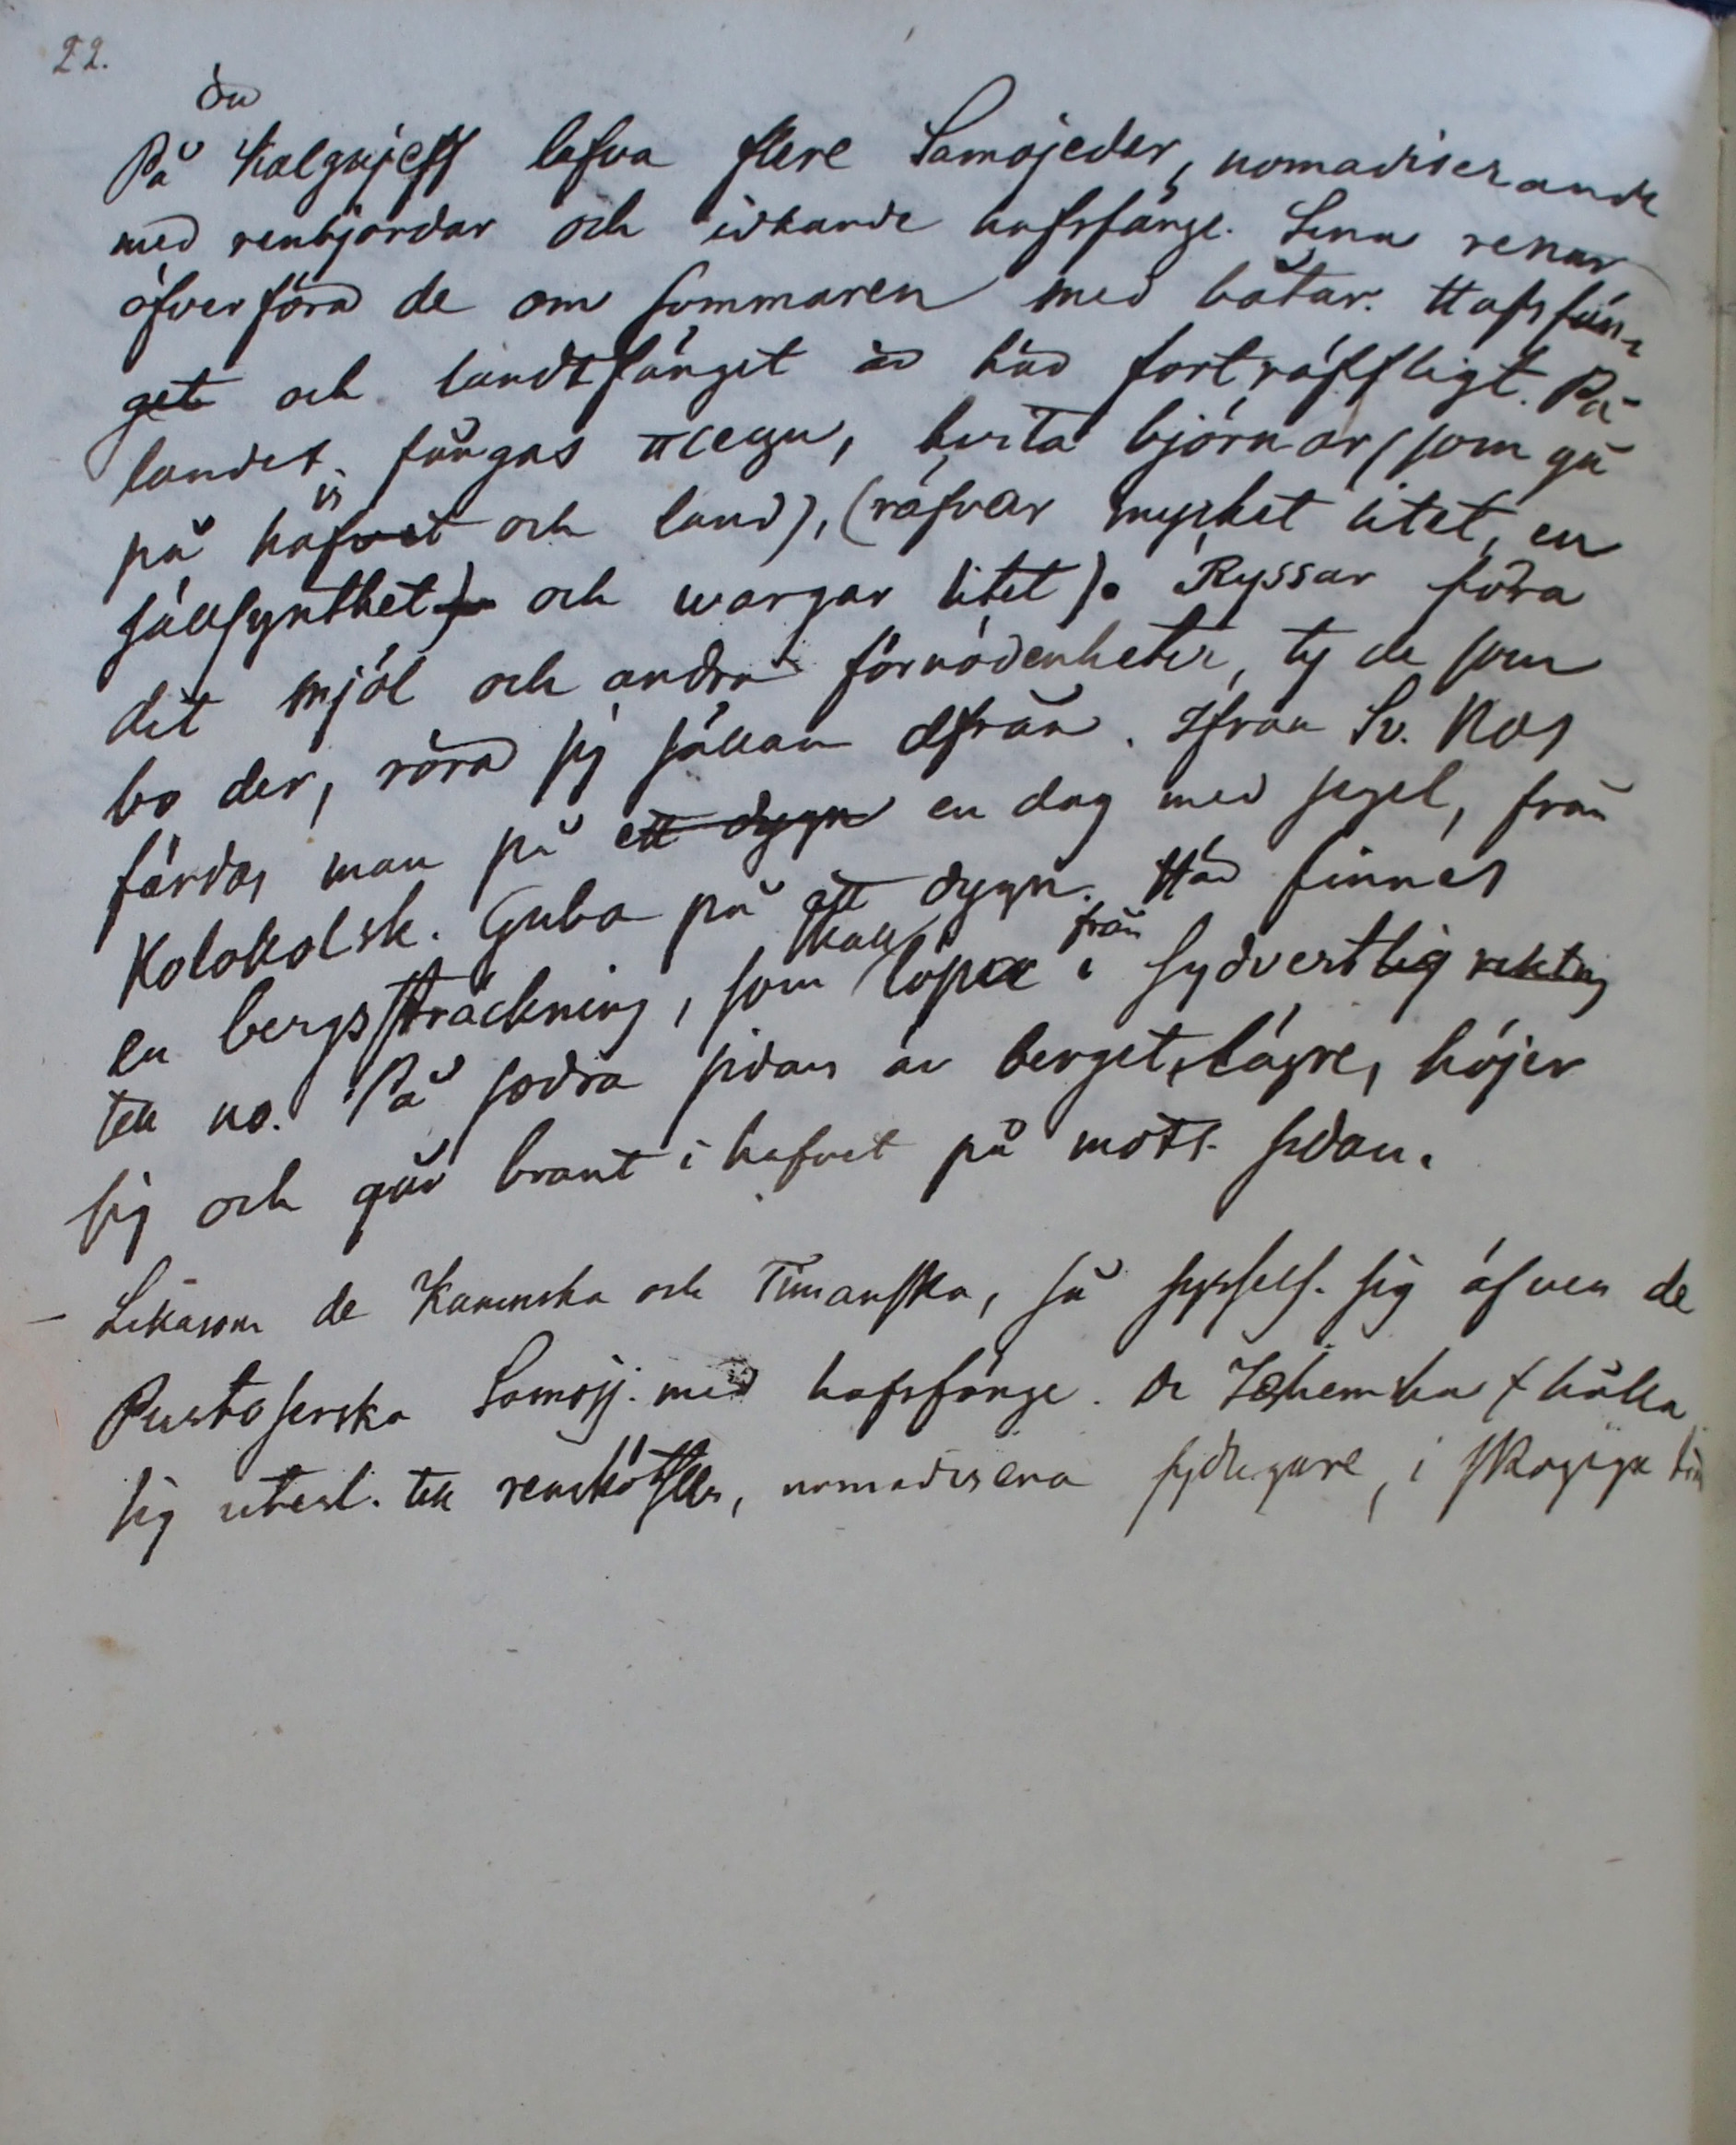 22.
ön
På Kolgujeff lefva flere Samojeder, nomadiserande
med renhjordar och idkande hafsfänge. Sina renar
öfverföra de om sommaren med båtar. Hafsfån-
get och landtfånget är här förträffligt. På
landet fångas песцы, hvita björnar (som gå
is
på hafvet och land), (räfvar mycket litet, en
sällsynthet) och wargar litet). Ryssar föra
dit mjöl och andra förnödenheter, ty de som
bo der, röra sig sällan derifrån. Ifrån Sv. Nos
färdas man på ett dygn en dag med segel, från
Kolokolsk. Guba på ett dygn. Här finnes
skall från
en bergssträckning, som löpa i sydvestlig riktng
till no. På södra sidan är berget lägre, höjer
sig och går brant i hafvet på mots. sidan.
– Likasom de Kaninska och Timanska, så syssels. sig äfven de
Pustoserska Samoj. med hafsfänge. De Ishemska hålla
sig utesl. till renskötsel, nomadisera sydligare, i skogiga